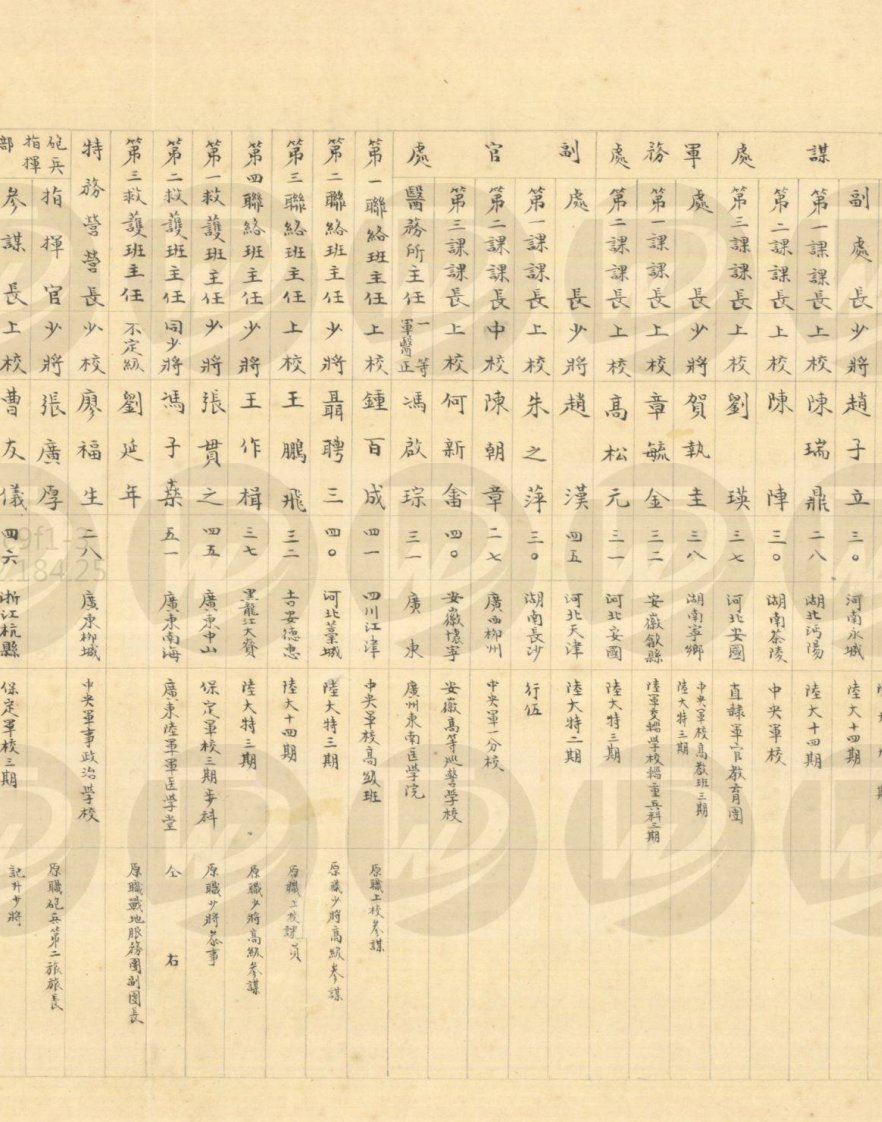 謀
處
副處長 少將 趙子立 三〇 河南永城 陸大十四期
第一課課長 上校 陳瑞鼎 二八 湖北沔陽 陸大十四期
第二課課長 上校 陳陣 三〇 湖南茶陵 中央軍校
第三課課長 上校 劉瑛 三七 河北安國 直隸軍官教育團
軍務處
處長 少將 賀執圭 三八 湖南寧鄉 中央軍校高教班三期 陸大特三期
第一課課長 上校 章毓金 三二 安徽歙縣 陸軍交輜學校輜重兵科三期
第二課課長 上校 高松元 三一 河北安國 陸大特三期
副官處
處長 少將 趙漢 四五 河北天津 陸大特二期
第一課課長 上校 朱之萍 三〇 湖南長沙 行伍
第二課課長 中校 陳朝章 二七 廣西柳州 中央軍一分校
第三課課長 上校 何新畬 四〇 安徽懷寧 安徽高等巡警學校
醫務所主任 一等軍醫正 馮啟琮 三一 廣東 廣州東南医學院
第一聯絡班主任 上校 鍾百成 四一 四川江津 中央軍校高級班 原職上校參謀
第二聯絡班主任 少將 聶聘三 四〇 河北藁城 陸大特三期 原職少將高級參謀
第三聯絡班主任 上校 王鵬飛 三二 吉安德惠 陸大十四期 原職上校課員
第四聯絡班主任 少將 王作楫 三七 黑龍江大賚 陸大特三期 原職少將高級參謀
第一救護班主任 少將 張貫之 四五 廣東中山 保定軍校三期步科 原職少將參事
第二救護班主任 同少將 馮子燊 五一 廣東南海 廣東陸軍軍医學堂 仝右
第三救護班主任 不定級 劉延年 原職戰地服務團副團長
特務營營長 少校 廖福生 二八 廣東柳城 中央軍事政治學校
砲兵指揮部
指揮官 少將 張廣厚 原職砲兵第二旅旅長
參謀長 上校 曹友儀 四六 浙江杭縣 保定軍校三期 記升少將